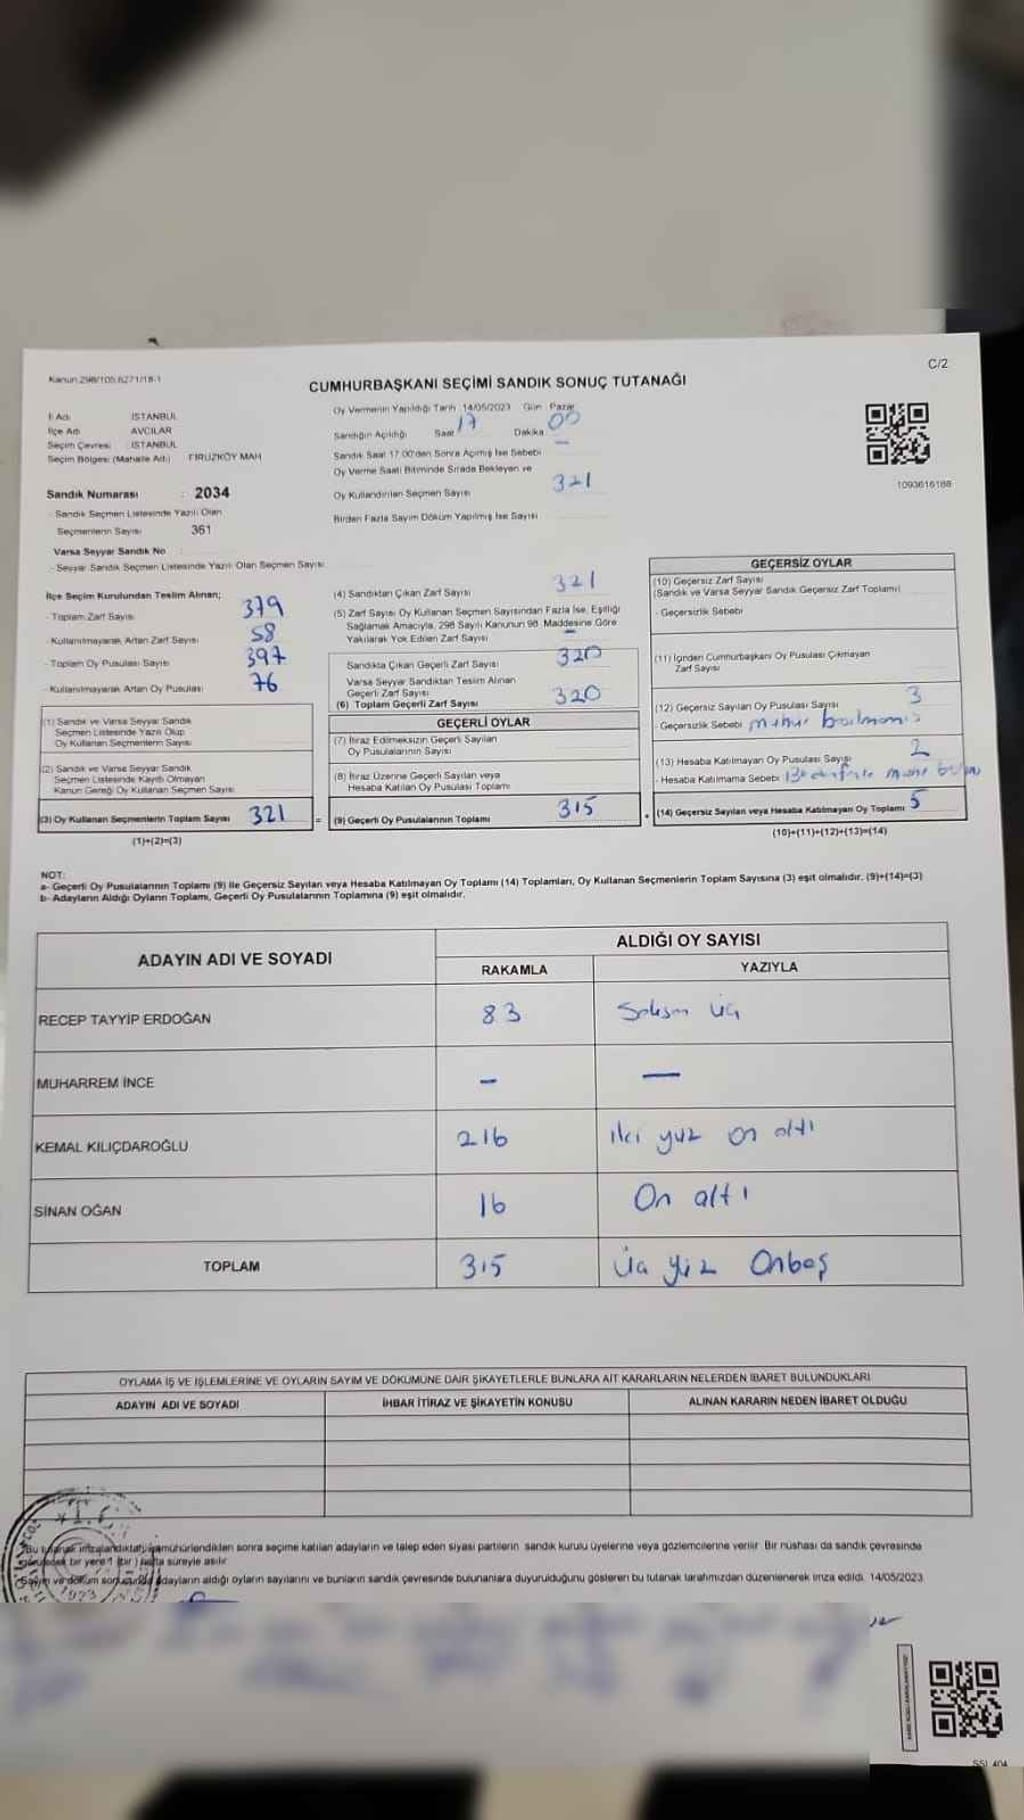 Kanun 298/105,6271/18-1
C/2
CUMHURBAŞKANI SEÇİMİ SANDIK SONUÇ TUTANAĞI
İl Adı İSTANBUL
İlçe Adı AVCILAR
Seçim Çevresi İSTANBUL
Seçim Bölgesi (Mahalle Adı) FİRUZKÖY MAH
Sandık Numarası : 2034
- Sandık Seçmen Listesinde Yazılı Olan
Seçmenlerin Sayısı 361
Varsa Seyyar Sandık No
- Seyyar Sandık Seçmen Listesinde Yazılı Olan Seçmen Sayısı
Oy Vermenin Yapıldığı Tarih 14/05/2023 Gün Pazar
Sandığın Açıldığı Saat 17 Dakika 00
Sandık Saat 17.00'den Sonra Açılmış İse Sebebi –
Oy Verme Saati Bitiminde Sırada Bekleyen ve
Oy Kullandırılan Seçmen Sayısı 321
Birden Fazla Sayım Döküm Yapılmış İse Sayısı
1093616188
İlçe Seçim Kurulundan Teslim Alınan;
- Toplam Zarf Sayısı 379
- Kullanılmayarak Artan Zarf Sayısı 58
- Toplam Oy Pusulası Sayısı 397
- Kullanılmayarak Artan Oy Pusulası 76
(1) Sandık ve Varsa Seyyar Sandık
Seçmen Listesinde Yazılı Olup
Oy Kullanan Seçmenlerin Sayısı
(2) Sandık ve Varsa Seyyar Sandık
Seçmen Listesinde Kayıtlı Olmayan
Kanun Gereği Oy Kullanan Seçmen Sayısı
(3) Oy Kullanan Seçmenlerin Toplam Sayısı 321 =
(1)+(2)=(3)
(4) Sandıktan Çıkan Zarf Sayısı 321
(5) Zarf Sayısı Oy Kullanan Seçmen Sayısından Fazla İse, Eşitliği
Sağlamak Amacıyla, 298 Sayılı Kanunun 98. Maddesine Göre
Yakılarak Yok Edilen Zarf Sayısı –
Sandıkta Çıkan Geçerli Zarf Sayısı 320
Varsa Seyyar Sandıktan Teslim Alınan
Geçerli Zarf Sayısı
(6) Toplam Geçerli Zarf Sayısı 320
GEÇERLİ OYLAR
(7) İtiraz Edilmeksizin Geçerli Sayılan
Oy Pusulalarının Sayısı
(8) İtiraz Üzerine Geçerli Sayılan veya
Hesaba Katılan Oy Pusulası Toplamı
(9) Geçerli Oy Pusulalarının Toplamı 315 +
GEÇERSİZ OYLAR
(10) Geçersiz Zarf Sayısı
(Sandık ve Varsa Seyyar Sandık Geçersiz Zarf Toplamı)
- Geçersizlik Sebebi
(11) İçinden Cumhurbaşkanı Oy Pusulası Çıkmayan
Zarf Sayısı
(12) Geçersiz Sayılan Oy Pusulası Sayısı 3
- Geçersizlik Sebebi mühür basılmamış
(13) Hesaba Katılmayan Oy Pusulası Sayısı 2
- Hesaba Katılmama Sebebi
(14) Geçersiz Sayılan veya Hesaba Katılmayan Oy Toplamı 5
(10)+(11)+(12)+(13)=(14)
NOT:
a- Geçerli Oy Pusulalarının Toplamı (9) ile Geçersiz Sayılan veya Hesaba Katılmayan Oy Toplamı (14) Toplamları, Oy Kullanan Seçmenlerin Toplam Sayısına (3) eşit olmalıdır. (9)+(14)=(3)
b- Adayların Aldığı Oyların Toplamı, Geçerli Oy Pusulalarının Toplamına (9) eşit olmalıdır.
ADAYIN ADI VE SOYADI
ALDIĞI OY SAYISI
RAKAMLA YAZIYLA
RECEP TAYYİP ERDOĞAN 83 Seksen üç
MUHARREM İNCE – –
KEMAL KILIÇDAROĞLU 216 iki yüz on altı
SİNAN OĞAN 16 On altı
TOPLAM 315 Üç yüz Onbeş
OYLAMA İŞ VE İŞLEMLERİNE VE OYLARIN SAYIM VE DÖKÜMÜNE DAİR ŞİKAYETLERLE BUNLARA AİT KARARLARIN NELERDEN İBARET BULUNDUKLARI
ADAYIN ADI VE SOYADI İHBAR İTİRAZ VE ŞİKAYETİN KONUSU ALINAN KARARIN NEDEN İBARET OLDUĞU
Bu tutanak imzalandıktan, mühürlendikten sonra seçime katılan adayların ve talep eden siyasi partilerin sandık kurulu üyelerine veya gözlemcilerine verilir. Bir nüshası da sandık çevresinde
görülecek bir yere 1 (bir) hafta süreyle asılır
Sayım ve döküm sonucunda adayların aldığı oyların sayılarını ve bunların sandık çevresinde bulunanlara duyurulduğunu gösteren bu tutanak tarafımızdan düzenlenerek imza edildi. 14/05/2023
T.C.
1923